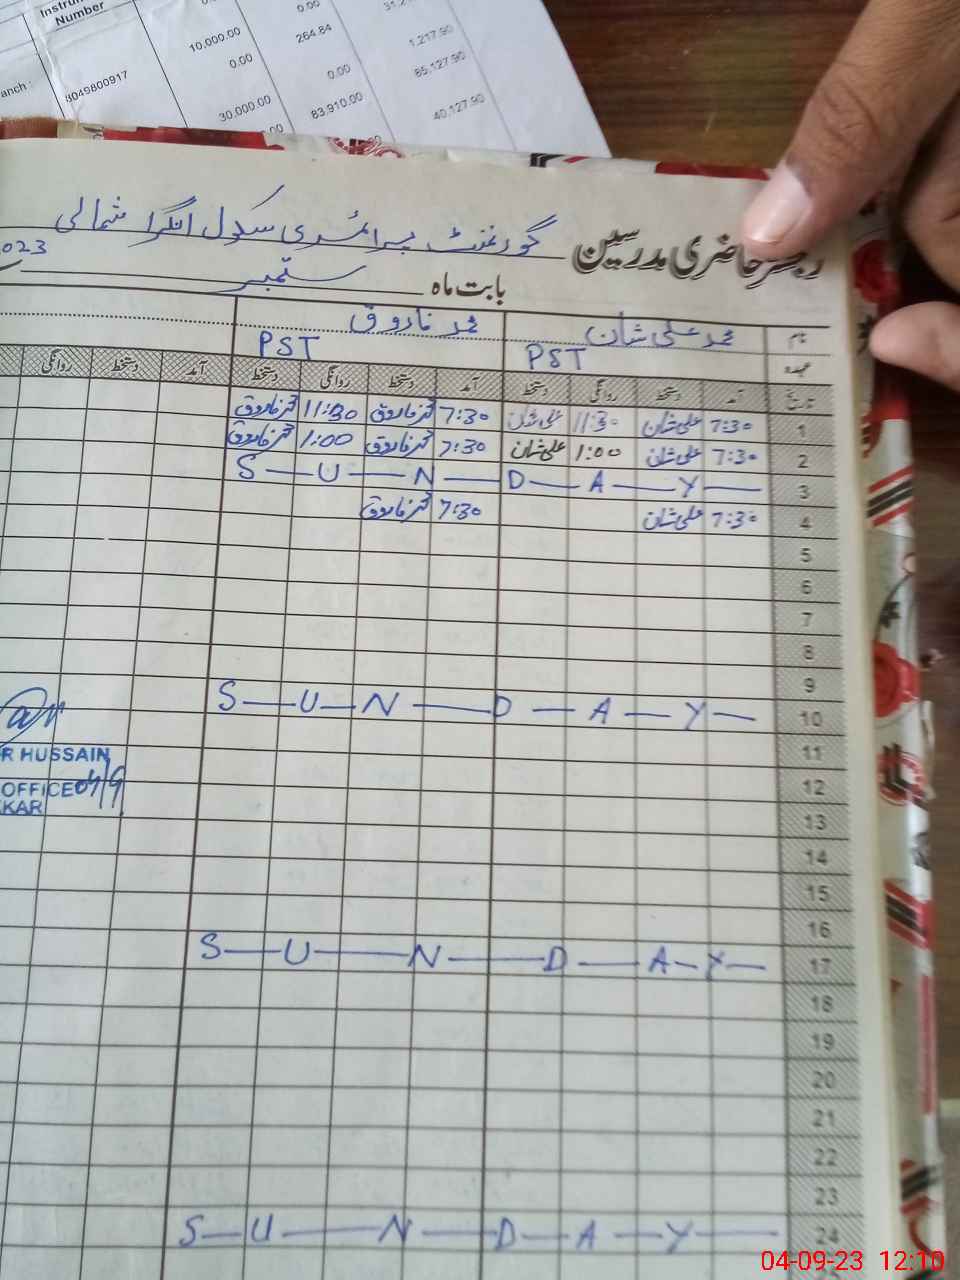 Number
anch :
8049800917
10,000.00
0.00
0.00
264.84
1,217.90
30,000.00
0.00
85,127.90
83,910.00
40,127.90
رجسٹر حاضری مدرسین گورنمنٹ پرائمری سکول انگرا شمالی
بابت ماہ ستمبر 2023
نام محمد علی شان محمد فاروق
عہدہ PST PST
تاریخ آمد دستخط روانگی دستخط آمد دستخط روانگی دستخط آمد دستخط روانگی
1 7:30 علی شان 11:30 علی شان 7:30 محمد فاروق 11:30 محمد فاروق
2 7:30 علی شان 1:00 علی شان 7:30 محمد فاروق 1:00 محمد فاروق
3 S U N D A Y
4 7:30 علی شان 7:30 محمد فاروق
5
6
7
8
9
10 S U N D A Y
11
R HUSSAIN
12
OFFICE 04/9
KAR
13
14
15
16
17 S U N D A Y
18
19
20
21
22
23
24 S U N D A Y
04-09-23 12:10